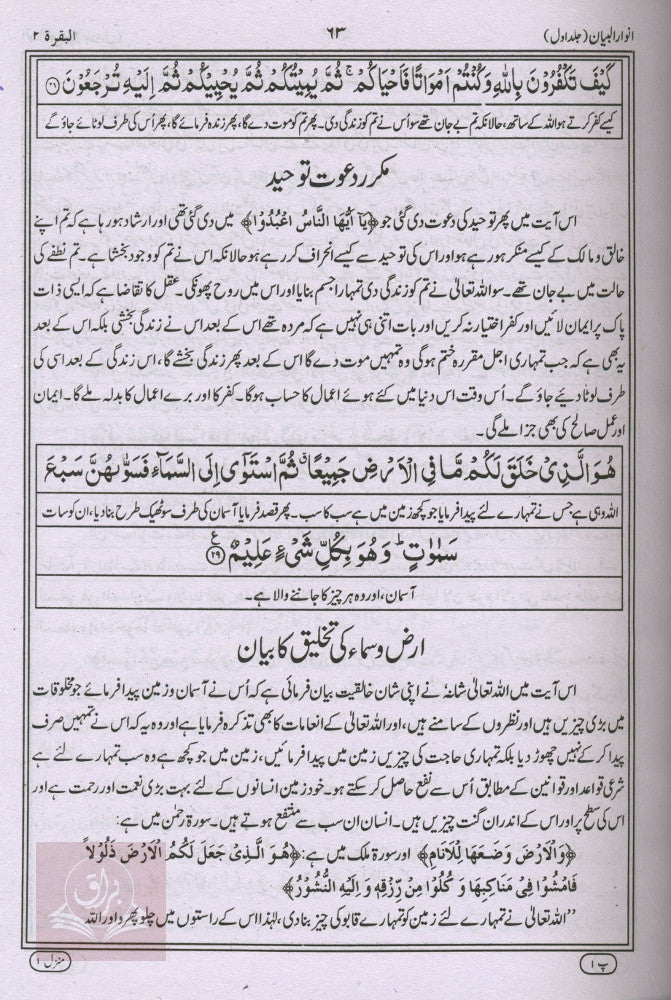 انوار البیان (جلد اول)
۶۳
البقرۃ ۲
كَيْفَ تَكْفُرُوْنَ بِاللّٰهِ وَكُنْتُمْ اَمْوَاتًا فَاَحْيَاكُمْ ۚ ثُمَّ يُمِيْتُكُمْ ثُمَّ يُحْيِيْكُمْ ثُمَّ اِلَيْهِ تُرْجَعُوْنَ ﴿۲۸﴾
کیسے کفر کرتے ہو اللہ کے ساتھ، حالانکہ تم بے جان تھے سو اُس نے تم کو زندگی دی۔ پھر تم کو موت دے گا، پھر زندہ فرمائے گا، پھر اُس کی طرف لوٹائے جاؤ گے
مکرر دعوت توحید
اس آیت میں پھر توحید کی دعوت دی گئی جو ﴿يَآ اَيُّهَا النَّاسُ اعْبُدُوْا﴾ میں دی گئی تھی اور ارشاد ہو رہا ہے کہ تم اپنے
خالق و مالک کے کیسے منکر ہو رہے ہو اور اس کی توحید سے کیسے انحراف کر رہے ہو حالانکہ اس نے تم کو وجود بخشا ہے۔ تم نطفے کی
حالت میں بے جان تھے۔ سو اللہ تعالیٰ نے تم کو زندگی دی تمہارا جسم بنایا اور اس میں روح پھونکی۔ عقل کا تقاضا ہے کہ ایسی ذات
پاک پر ایمان لائیں اور کفر اختیار نہ کریں اور بات اتنی ہی نہیں ہے کہ مردہ تھے اس کے بعد اس نے زندگی بخشی بلکہ اس کے بعد
یہ بھی ہے کہ جب تمہاری اجل مقررہ ختم ہوگی وہ تمہیں موت دے گا اس کے بعد پھر زندگی بخشے گا، اس زندگی کے بعد اسی کی
طرف لوٹا دیئے جاؤ گے۔ اُس وقت اس دنیا میں کئے ہوئے اعمال کا حساب ہوگا۔ کفر کا اور برے اعمال کا بدلہ ملے گا۔ ایمان
اور عمل صالح کی بھی جزا ملے گی۔
هُوَ الَّذِيْ خَلَقَ لَكُمْ مَّا فِي الْاَرْضِ جَمِيْعًا ۗ ثُمَّ اسْتَوٰٓى اِلَى السَّمَآءِ فَسَوّٰىهُنَّ سَبْعَ
اللہ وہی ہے جس نے تمہارے لئے پیدا فرمایا جو کچھ زمین میں ہے سب کا سب۔ پھر قصد فرمایا آسمان کی طرف سو ٹھیک طرح بنا دیا، ان کو سات
سَمٰوٰتٍ ؕ وَهُوَ بِكُلِّ شَيْءٍ عَلِيْمٌ ﴿۲۹﴾ ع
آسمان، اور وہ ہر چیز کا جاننے والا ہے
ارض و سماء کی تخلیق کا بیان
اس آیت میں اللہ تعالیٰ شانہٗ نے اپنی شان خالقیت بیان فرمائی ہے کہ اُس نے آسمان و زمین پیدا فرمائے جو مخلوقات
میں بڑی چیزیں ہیں اور نظروں کے سامنے ہیں، اور اللہ تعالیٰ کے انعامات کا بھی تذکرہ فرمایا ہے اور وہ یہ کہ اس نے تمہیں صرف
پیدا کر کے نہیں چھوڑ دیا بلکہ تمہاری حاجت کی چیزیں زمین میں پیدا فرمائیں، زمین میں جو کچھ ہے وہ سب تمہارے لئے ہے
شرعی قواعد اور قوانین کے مطابق اُس سے نفع حاصل کر سکتے ہو۔ خود زمین انسانوں کے لئے بہت بڑی نعمت اور رحمت ہے اور
اس کی سطح پر اور اس کے اندر ان گنت چیزیں ہیں۔ انسان ان سب سے منتفع ہوتے ہیں۔ سورۃ رحمٰن میں ہے:
﴿وَالْاَرْضَ وَضَعَهَا لِلْاَنَامِ﴾ اور سورۃ ملک میں ہے: ﴿هُوَ الَّذِيْ جَعَلَ لَكُمُ الْاَرْضَ ذَلُوْلًا
فَامْشُوْا فِيْ مَنَاكِبِهَا وَ كُلُوْا مِنْ رِّزْقِهٖ وَ اِلَيْهِ النُّشُوْرُ﴾
”اللہ تعالیٰ نے تمہارے لئے زمین کو تمہارے قابو کی چیز بنا دی، لہٰذا اس کے راستوں میں چلو پھرو اور اللہ
براق
پ ۱
منزل ۱